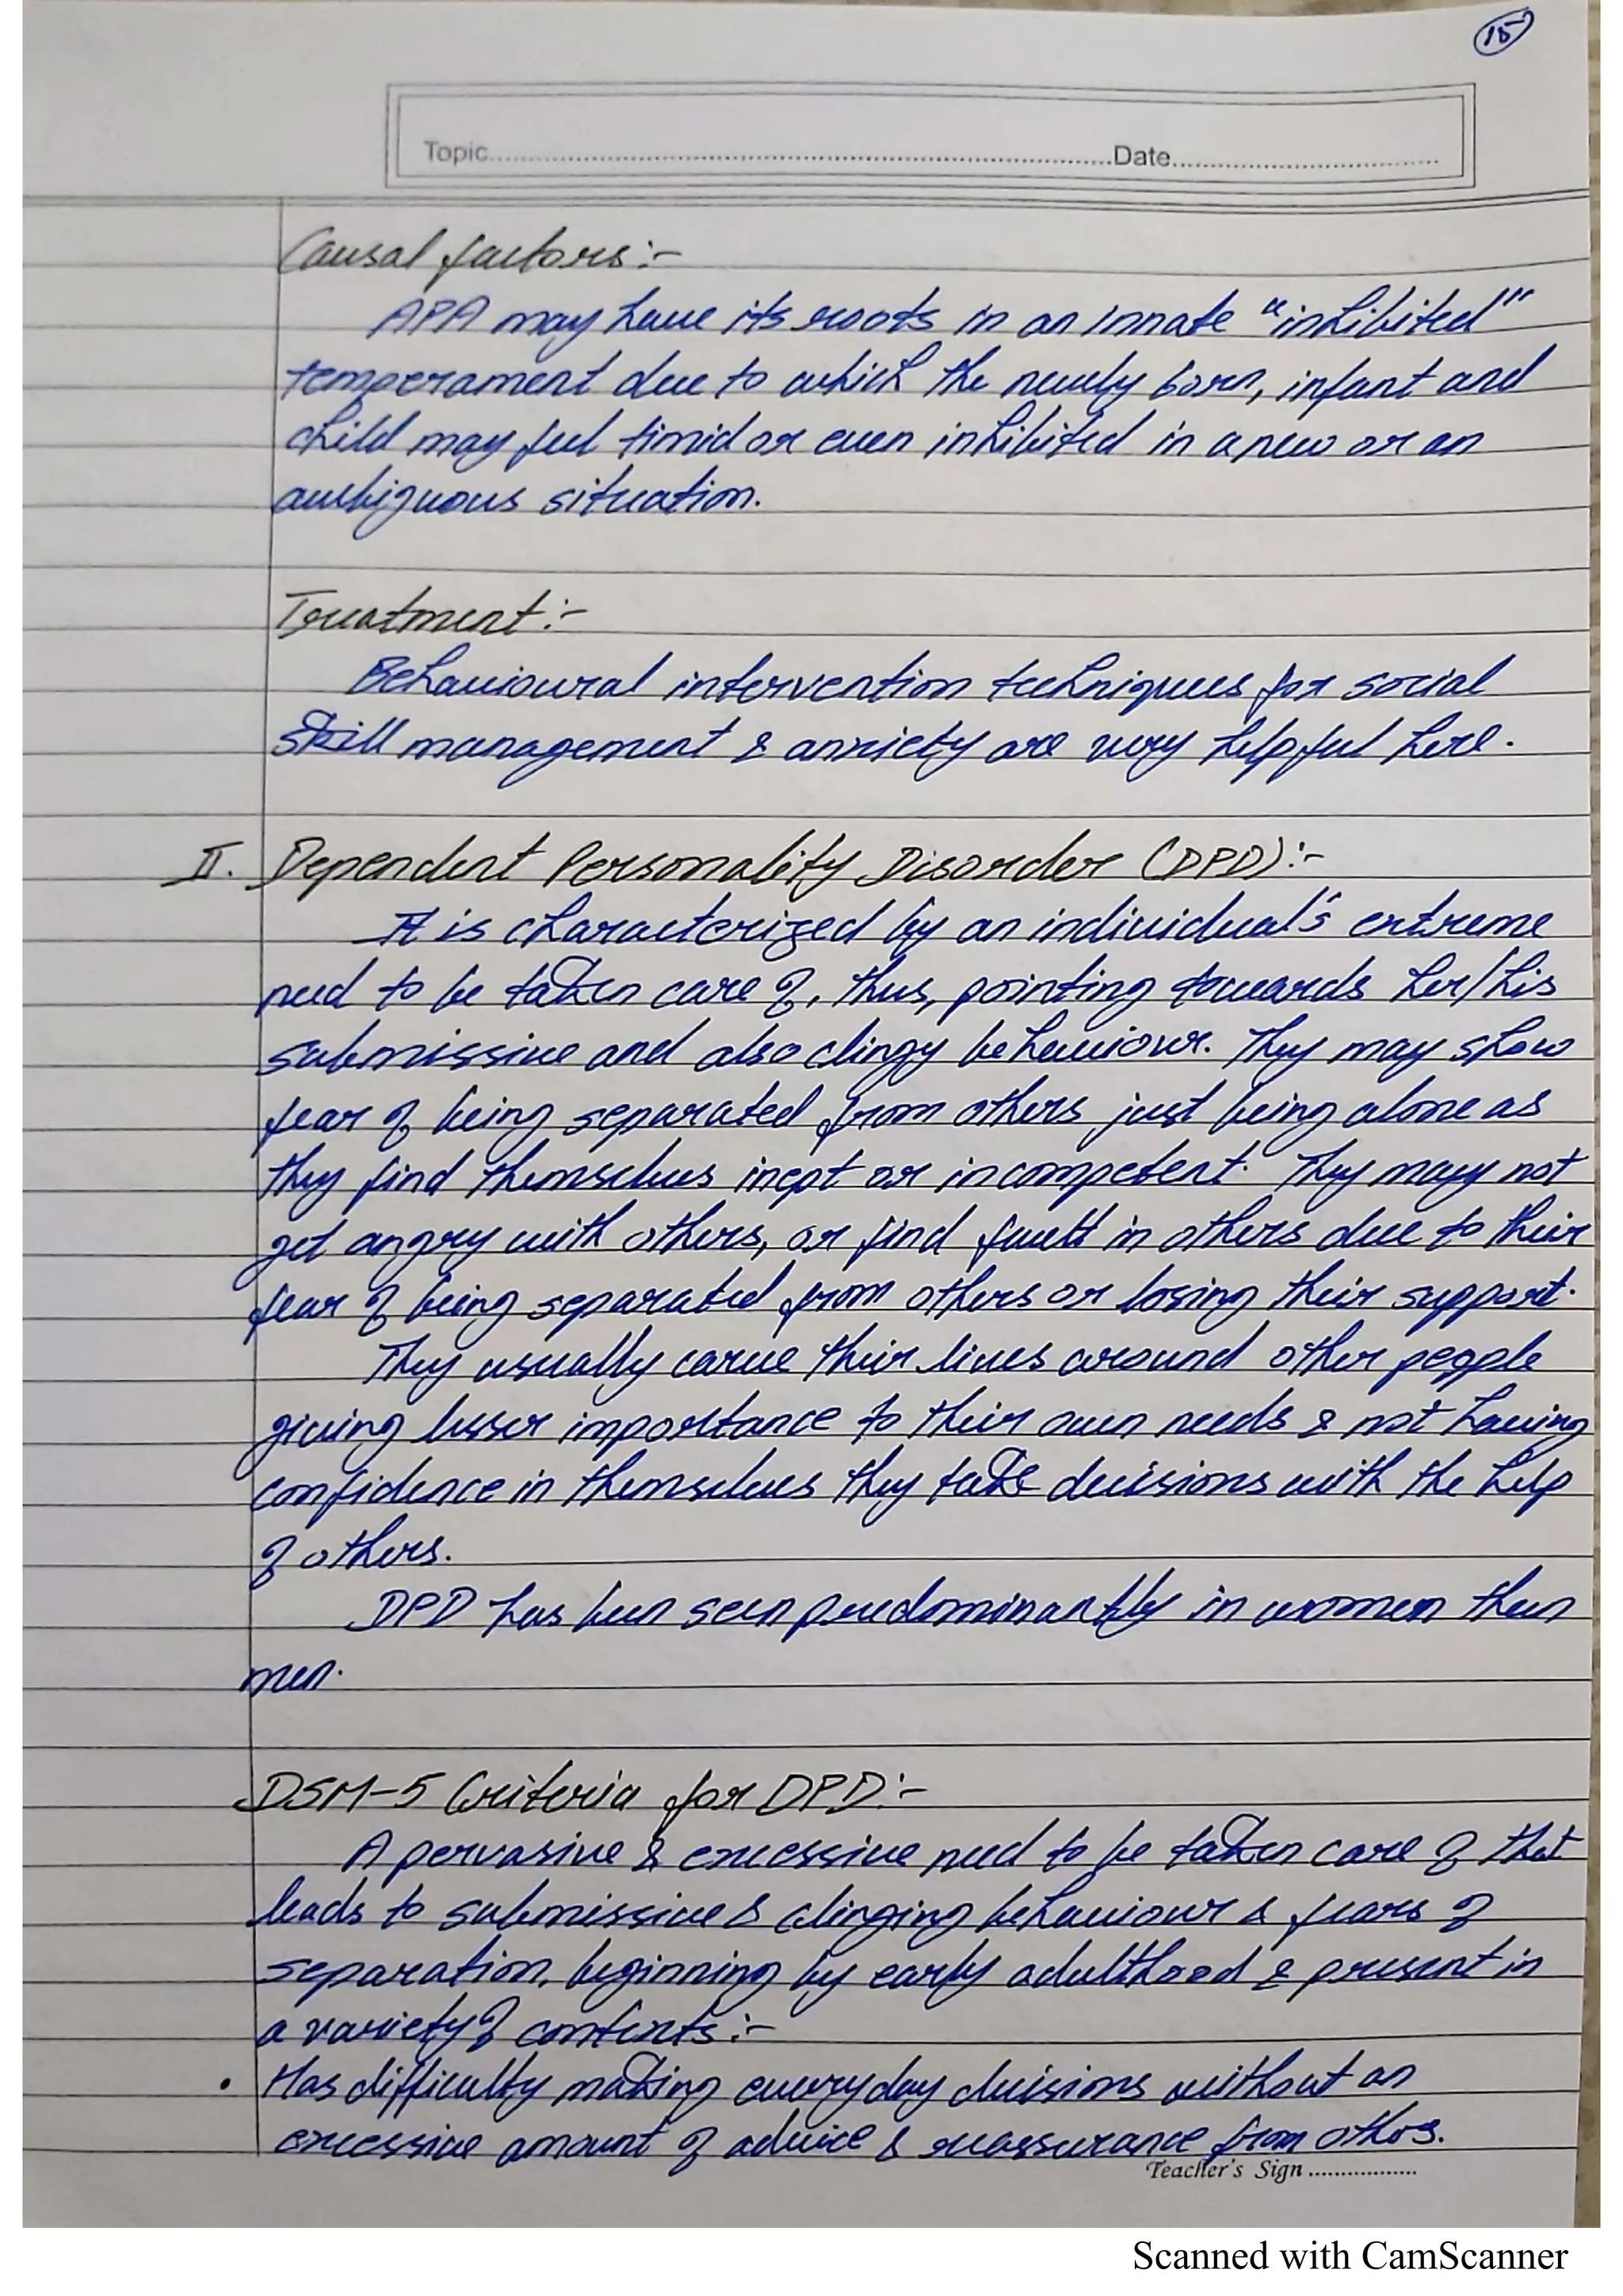 15
Topic..........Date..........
Causal factors:-
APA may have its roots in an innate "inhibited"
temperament due to which the newly born, infant and
child may feel timid or even inhibited in a new or an
ambiguous situation.
Treatment:-
Behavioural intervention techniques for social
skill management & anxiety are very helpful here.
II. Dependent Personality Disorder (DPD):-
It is characterized by an individual's extreme
need to be taken care of, thus, pointing towards her/his
submissive and also clingy behaviour. They may show
fear of being separated from others just being alone as
they find themselves inept or incompetent. They mayy not
get angry with others, or find fault in others due to their
fear of being separated from others or losing their support.
They usually carve their lives around other people
giving lesser importance to their own needs & not having
confidence in themselves they take decisions with the help
of others.
DPD has been seen predominantly in women then
men.
DSM-5 Criteria for DPD:-
A pervasive & excessive need to be taken care of that
leads to submissive & clinging behaviour & fears of
separation, beginning by early adulthood & present in
a variety of contexts:-
• Has difficulty making everyday decisions without an
excessive amount of advice & reassurance from others.
Teacher's Sign..........
Scanned with CamScanner